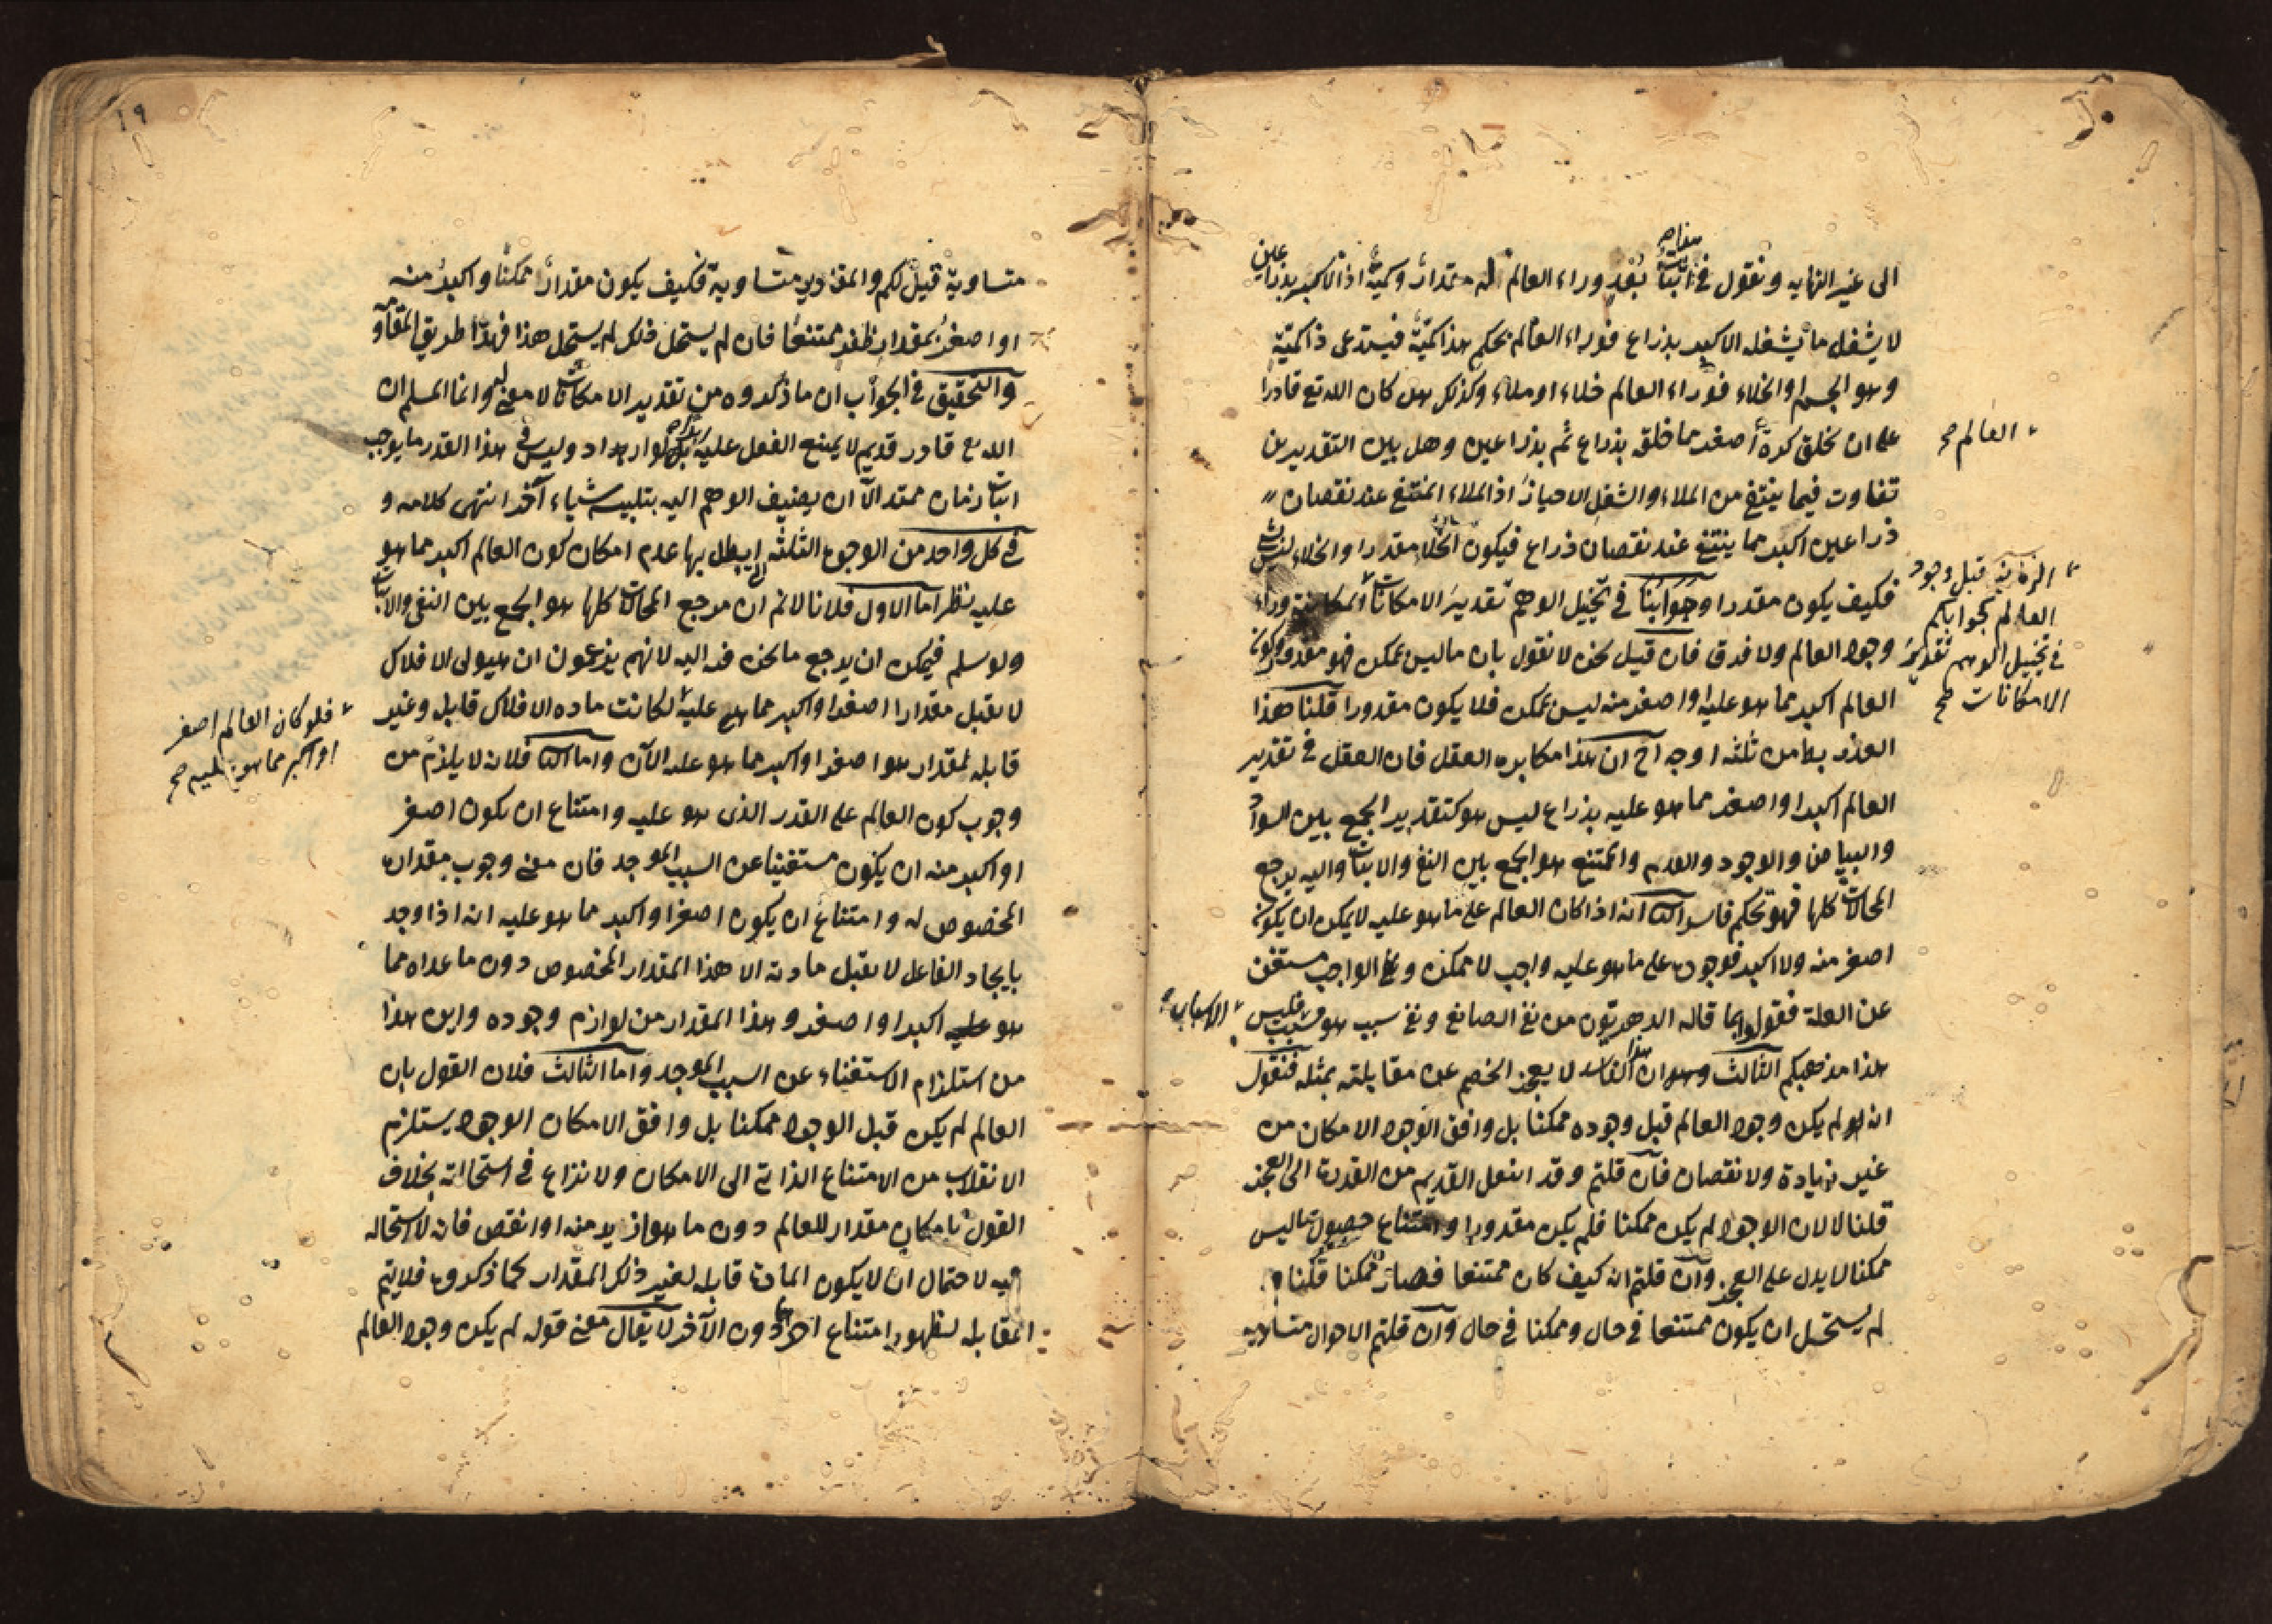 الى غير النهايه ونقول في اثبات بُعْدٍ وراء العالم له مقدارٌ وكميةٌ اذ الاكبر بذراعين
لا يشغل ما يشغله الاكبر بذراع فوراء العالم بحكم هذا كميّةٌ فيستدعى ذا كميّة
وهو الجسم او الخلاء فوراء العالم خلاء او ملاء وكذلك هل كان الله تع قادرا
على ان يخلق كرة أصغر مما خلقه بذراع ثم بذراعين وهل بين التقديرين
تفاوت فيما ينتفى من الملاء والشغل الاحياز اذ الملاء المنتفى عند نقصان
ذراعين اكبر مما ينتفى عند نقصان ذراع فيكون الخلاء مقدرا والخلاء ليس بشئ
فكيف يكون مقدرا وجوابنا في تخييل الوهم تقدير الامكانات المكانية وراء
وجود العالم ولا فرق فان قيل نحن لا نقول بان ما ليس بممكن فهو مقدور وكون
العالم اكبر مما هو عليه او اصغر منه ليس بممكن فلا يكون مقدورا قلنا هذا
العذر بط من ثلثه اوجه آح ان هذا مكابره العقل فان العقل في تقدير
العالم اكبر او اصغر مما هو عليه بذراع ليس هو كتقدير الجمع بين السواد
والبياض والوجود والعدم والممتنع هو الجمع بين النفى والاثبات واليه يرجع
المحالات كلها فهو تحكم فاسد الثانى انه اذا كان العالم على ما هو عليه لا يمكن ان يكون
اصغر منه ولا اكبر فوجوده على ما هو عليه واجب لا ممكن والواجب مستغن
عن العلة فقولوا بما قاله الدهريون من نفى الصانع ونفى سبب هو مسبب الاسباب فليس
هذا مذهبكم الثالث وهو ان هذا الفاسد لا يعجز الخصم عن مقابلته بمثله فنقول
انه لو لم يكن وجود العالم قبل وجوده ممكنا بل وافق الوجود الامكان من
غير زيادة ولا نقصان فان قلتم وقد انتقل القديم من القدرة الى العجز
قلنا لا لان الوجود لم يكن ممكنا فلم يكن مقدورا وامتناع حصول ما ليس
ممكنا لا يدل على العجز وان قلتم انه كيف كان ممتنعا فصار ممكنا قلنا
لم يستحيل ان يكون ممتنعا في حال وممكنا في حال وان قلتم الاحوال متساويه
العالم صح
الزمانية قبل وجود
العالم كجوابكم
في تخييل الوهم تقدير
الامكانات صح
19
متساوية قيل لكم والمقادير متساوية فكيف يكون مقدارٌ ممكنًا واكبرُ منه
او اصغرُ بمقدار ظفرٍ ممتنعًا فان لم يستحل ذلك لم يستحل هذا فهذا طريق المقاومة
والتحقيق في الجواب ان ما ذكروه من تقدير الامكانات لا معنى لها وانما المسلم ان
الله تع قادر قديم لا يمتنع الفعل عليه ابدا لو اراد وليس في هذا القدر ما يوجب
اثبات زمان ممتد الّا ان يضيف الوهم اليه بتلبيسه شياء آخر انتهى كلامه و
في كل واحد من الوجوه الثلثه التى ابطل بها عدم امكان كون العالم اكبر مما هو
عليه نظر اما الاول فلانا لا نم ان مرجع المحالات كلها هو الجمع بين النفى والاثبات
ولو سلم فيمكن ان يرجع ما نحن فيه اليه لانهم يزعمون ان هيولى الافلاك
لا تقبل مقدارا اصغر او اكبر مما هى عليه لكانت ماده الافلاك قابله وغير
قابله لمقدار هو اصغر او اكبر مما هو عليه الآن واما الثانى فلانه لا يلزم من
وجوب كون العالم على القدر الذى هو عليه وامتناع ان يكون اصغر
او اكبر منه ان يكون مستغنيا عن السبب الموجد فان معنى وجوب مقداره
المخصوص له وامتناع ان يكون اصغر او اكبر مما هو عليه انه اذا وجد
بايجاد الفاعل لا يقبل مادته الا هذا المقدار المخصوص دون ما عداه مما
هو عليه اكبر او اصغر وهذا المقدار من لوازم وجوده واين هذا
من استلزام الاستغناء عن السبب الموجد واما الثالث فلان القول بان
العالم لم يكن قبل الوجود ممكنا بل وافق الامكان الوجود يستلزم
الانقلاب من الامتناع الذاتى الى الامكان ولا نزاع في استحالته بخلاف
القول بامكان مقدار للعالم دون ما هو ازيد منه او انقص فانه لا استحاله
فيه لاحتمال ان لا يكون المادة قابله لغير ذلك المقدار كما ذكروه فلا يتم
المقابله لظهور امتناع احدهما دون الآخر لا يقال معنى قوله لم يكن وجود العالم
فلو كان العالم اصغر
او اكبر مما هو عليه صح